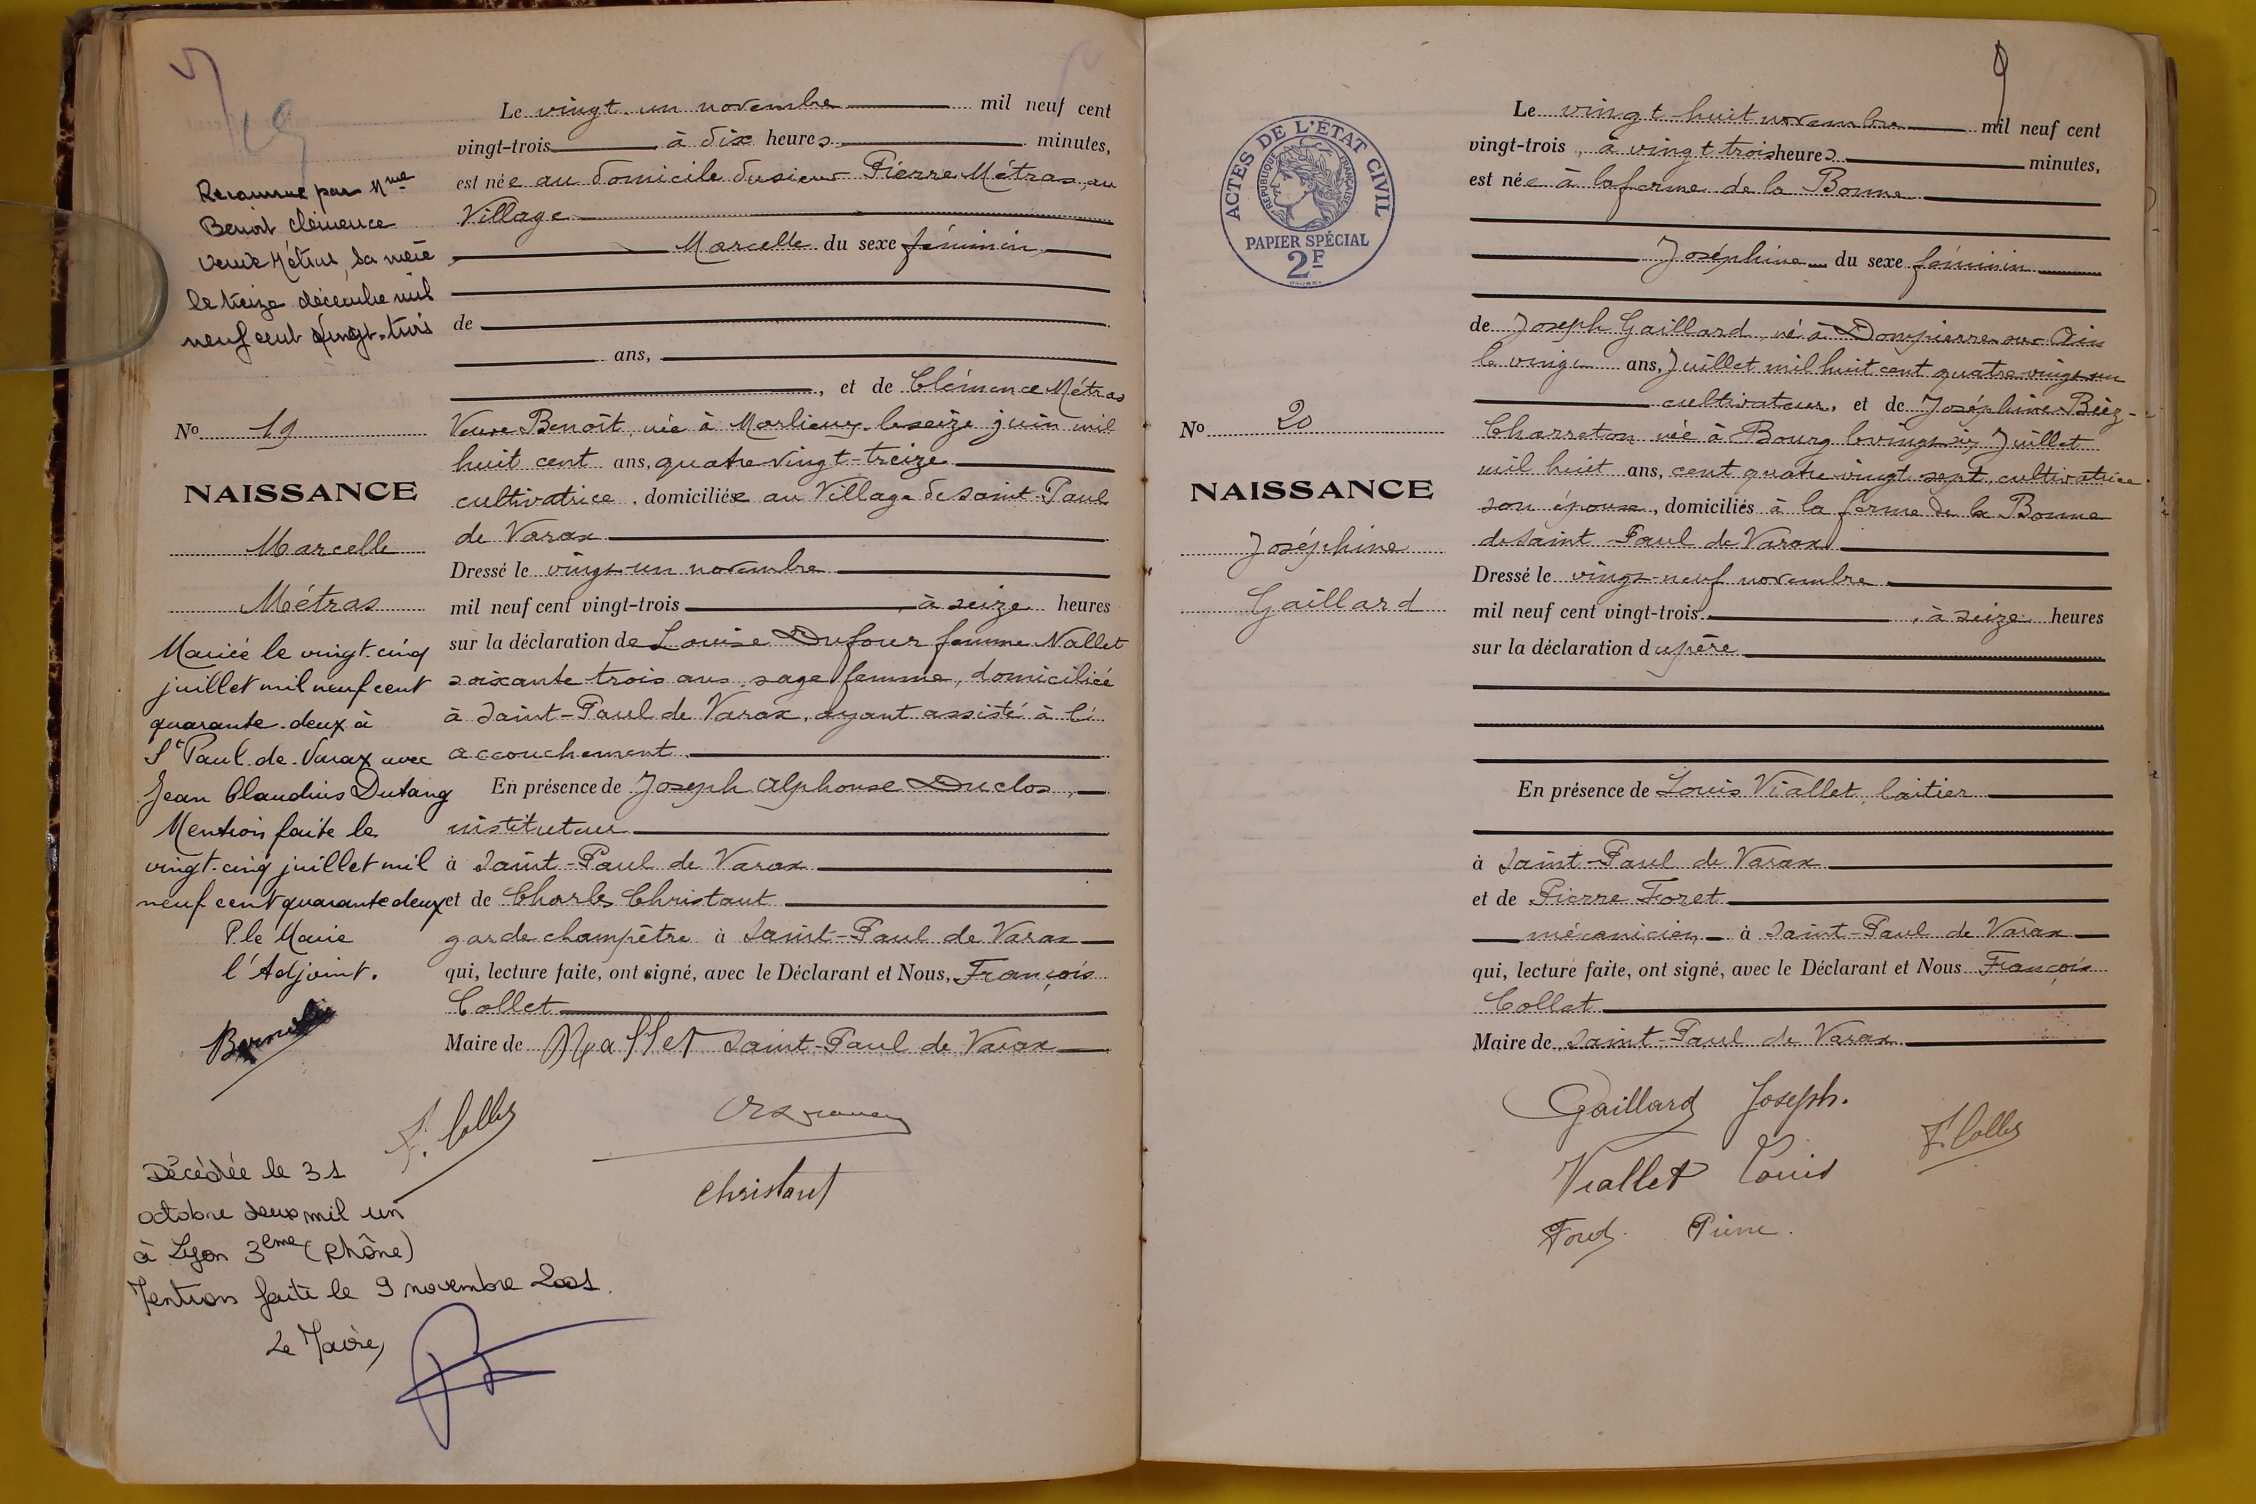 19
Reconnue par Mme
Benoit Clémence
veuve Métras, sa mère
le treize décembre mil
neuf cent vingt-trois
No 19
NAISSANCE
Marcelle
Métras
Mariée le vingt-cinq
juillet mil neuf cent
quarante-deux à
St Paul-de-Varax avec
Jean Claudius Dutang
Mention faite le
vingt-cinq juillet mil
neuf cent quarante deux
P. le Maire
l'Adjoint.
Décédée le 31
octobre deux mil un
à Lyon 3eme (Rhône)
Mention faite le 9 novembre 2001.
Le Maire,
Le vingt-un novembre mil neuf cent
vingt-trois à dix heures minutes,
est née au domicile du sieur Pierre Métras, au
Village
Marcelle du sexe féminin
de
ans,
, et de Clémence Métras
Veuve Benoît, née à Marlieux le seize juin mil
huit cent ans, quatre vingt-treize
cultivatrice, domiciliée au Village de Saint-Paul
de Varax
Dressé le vingt-un novembre
mil neuf cent vingt-trois, à seize heures
sur la déclaration de Louise Dufour femme Nallet
soixante trois ans, sage femme, domiciliée
à Saint-Paul de Varax, ayant assisté à l'
accouchement
En présence de Joseph Alphonse Duclos,
instituteur
à Saint-Paul de Varax
et de Charles Christaut
garde champêtre à Saint-Paul de Varax
qui, lecture faite, ont signé, avec le Déclarant et Nous, François
Collet
Maire de Nallet Saint-Paul de Varax
F. Collet
Christaut
9
ACTES DE L'ÉTAT CIVIL
RÉPUBLIQUE FRANÇAISE
PAPIER SPÉCIAL
2F
No 20
NAISSANCE
Joséphine
Gaillard
Le vingt-huit novembre mil neuf cent
vingt-trois, à vingt trois heures minutes,
est née à la ferme de la Bonne
Joséphine du sexe féminin
de Joseph Gaillard, né à Dompierre sur Ain
le vingt ans, Juillet mil huit cent quatre vingt un
cultivateur, et de Joséphine Biez-
Charreton née à Bourg le vingt six Juillet
mil huit ans, cent quatre vingt-sept, cultivatrice
son épouse, domiciliés à la ferme de la Bonne
de Saint-Paul de Varax
Dressé le vingt-neuf novembre
mil neuf cent vingt-trois, à seize heures
sur la déclaration du père
En présence de Louis Viallet, laitier
à Saint-Paul de Varax
et de Pierre Foret
mécanicien à Saint-Paul de Varax
qui, lecture faite, ont signé, avec le Déclarant et Nous François
Collet
Maire de Saint-Paul de Varax
Gaillard Joseph.
F. Collet
Viallet Louis
Foret Pierre.